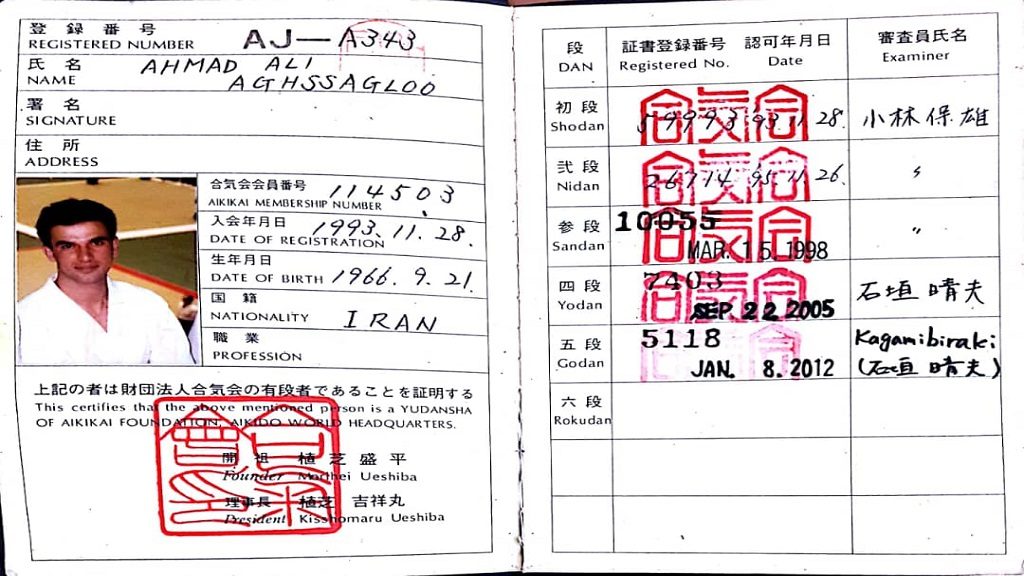 登録番号
REGISTERED NUMBER AJ-A343
氏名 AHMAD ALI
NAME AGHSSAGLOO
署名
SIGNATURE
住所
ADDRESS
合気会会員番号 114503
AIKIKAI MEMBERSHIP NUMBER
入会年月日 1993.11.28.
DATE OF REGISTRATION
生年月日
DATE OF BIRTH 1966.9.21.
国籍
NATIONALITY IRAN
職業
PROFESSION
上記の者は財団法人合気会の有段者であることを証明する
This certifies that the above mentioned person is a YUDANSHA
OF AIKIKAI FOUNDATION, AIKIDO WORLD HEADQUARTERS.
開祖 植芝盛平
Founder Morihei Ueshiba
理事長 植芝吉祥丸
President Kisshomaru Ueshiba
段 証書登録番号 認可年月日 審査員氏名
DAN Registered No. Date Examiner
初段 59993 93.11.28. 小林保雄
Shodan
弐段 26714 95.11.26. 〃
Nidan
参段 10055 〃
Sandan MAR. 15.1998
四段 7403 石垣晴夫
Yodan SEP. 22 2005
五段 5118 Kagamibiraki
Godan JAN. 8.2012 (石垣晴夫)
六段
Rokudan
合気会
合気会
合気会
合気会